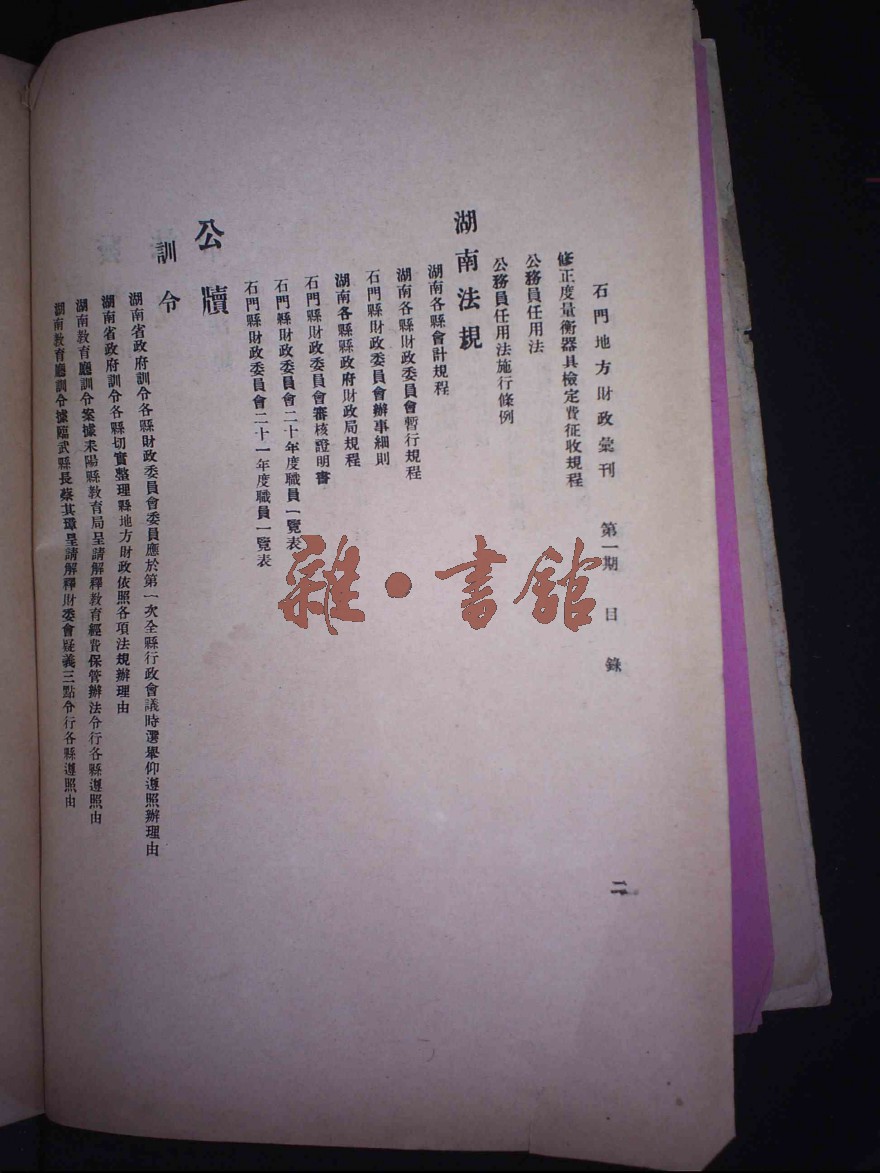 石門地方財政彙刊 第一期 目錄 二
修正度量衡器具檢定費征收規程
公務員任用法
公務員任用法施行條例
湖南法規
湖南各縣會計規程
湖南各縣財政委員會暫行規程
石門縣財政委員會辦事細則
湖南各縣縣政府財政局規程
石門縣財政委員會審核證明書
石門縣財政委員會二十年度職員一覽表
石門縣財政委員會二十一年度職員一覽表
公牘
訓令
湖南省政府訓令各縣財政委員會委員應於第一次全縣行政會議時選舉仰遵照辦理由
湖南省政府訓令各縣切實整理縣地方財政依照各項法規辦理由
湖南教育廳訓令案據耒陽縣教育局呈請解釋教育經費保管辦法令行各縣遵照由
湖南教育廳訓令據臨武縣長蔡其璋呈請解釋財委會疑義三點令行各縣遵照由
雜·書館